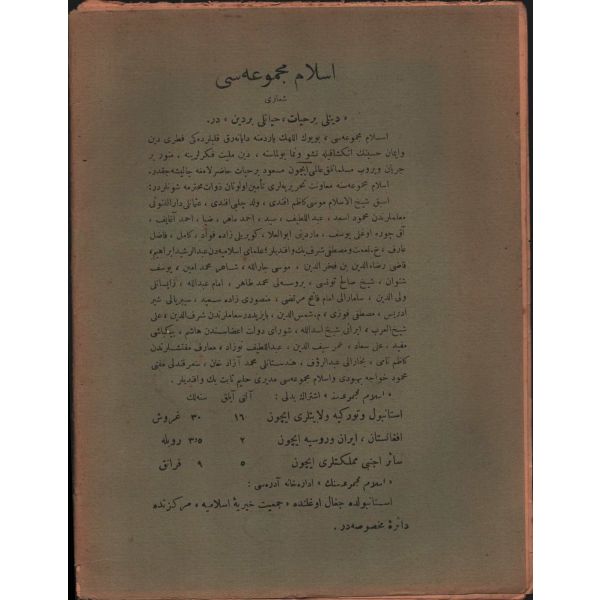 اسلام مجموعه‌سی
شعاری
« دینلی بر حیات ، حیاتلی بر دین » در.
اسلام مجموعه‌سی ، بویوك اللهك یاردمنه دایانه‌رق قلبلرده‌كی فطری دین
وایمان حسینك انكشافیله نشو ونما بولماسنه ، دین ملیت فكرلرینه ، منور بر
جریان ویروب مسلمانلق عالمی ایچون مسعود بر حیات حاضرلامغه چالیشه‌جقدر.
اسلام مجموعه‌سنه معاونت تحریریه‌لری تأمین اولونان ذوات محترمه شونلردر:
اسبق شیخ الاسلام موسی كاظم افندی ، ولد چلبی افندی ، عثمانلی دار الفنونی
معلملرندن محمود اسعد ، عبد اللطیف ، سید ، احمد ماهر ، ضیا ، احمد آغایف ،
آق چوره اوغلی یوسف ، ماردینی ابوالعلا ، كوپریلی زاده فؤاد ، كامل ، فاضل
عارف ، خ. نعمت ومصطفی شرف بك وافندیلر ؛ علمای اسلامیه‌دن عبد الرشید ابراهیم ،
قاضی رضاء الدین بن فخر الدین ، موسی جارالله ، محمد امین ، یوسف
شیخ صالح تونسی ، بروسه‌لی محمد طاهر ، امام عبدالله ،
ولی الدین ، سامارالی امام فاتح مرتضی ، منصوری زاده سعید ، سیبریالی شیر
ادریس ، مصطفی فوزی ، م. شمس الدین ، بایزید درسعاملرندن شرف الدین ، علی
شیخ العرب ، ایرانی شیخ اسدالله ، شورای دولت اعضاسندن هاشم ، بیكباشی
مفید ، علی سعاد ، عمر سیف الدین ، عبد اللطیف نوزاد ، معارف مفتشلرندن
كاظم نامی ، بخارالی عبد الرؤف ، هندستانلی محمد آزاد خان ، سمرقندلی مفتی
محمود خواجه بهبودی واسلام مجموعه‌سی مدیری حلیم ثابت بك وافندیلر .
« اسلام مجموعه‌سنه » اشتراك بدلی : آلتی آیلق سنه‌لك
استانبول وتوركیه ولایتلری ایچون ١٦ ٣٠ غروش
افغانستان ، ایران وروسیه ایچون ٢ ٣٫٥ روبله
سائر اجنبی مملكتلری ایچون ٥ ٩ فرانق
« اسلام مجموعه‌سنك » اداره‌خانه آدره‌سی :
استانبولده جغال اوغلنده « جمعیت خیریۀ اسلامیه » مركزنده
دائرۀ مخصوصه‌در .